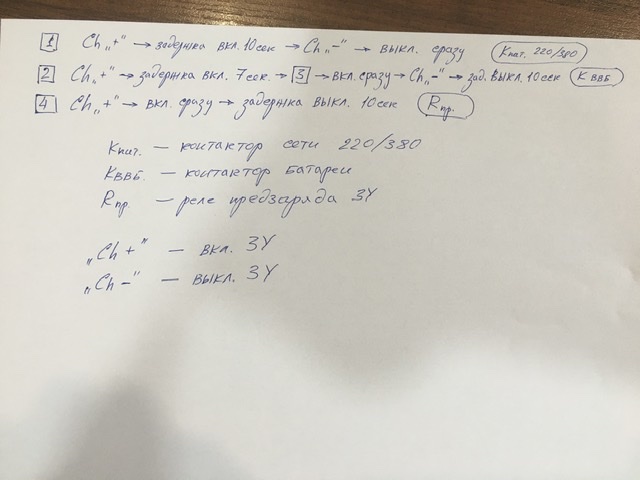 1 Ch „+" → задержка вкл. 10сек → Ch „–" → выкл. сразу Kпит. 220/380
2 Ch „+" → задержка вкл. 7сек. → 3 → вкл. сразу → Ch „–" → зад. выкл. 10сек KВВБ
4 Ch „+" → вкл. сразу → задержка выкл. 10сек Rпр.
Kпит. — контактор сети 220/380
KВВБ. — контактор батареи
Rпр. — реле предзаряда ЗУ
„Ch +" — вкл. ЗУ
„Ch –" — выкл. ЗУ